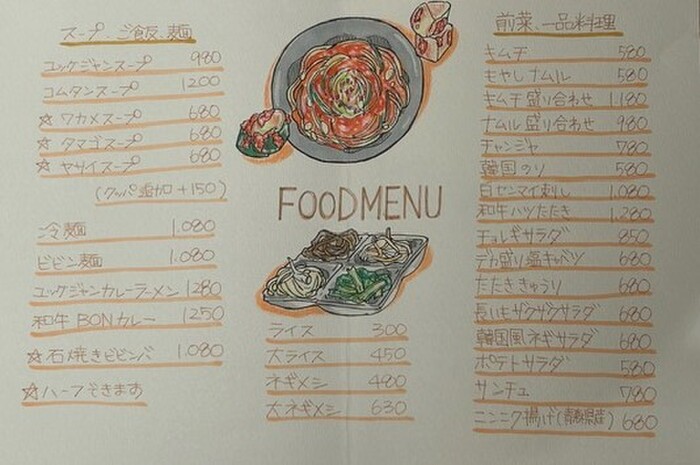 スープ、ご飯、麺
ユッケジャンスープ 980
コムタンスープ 1200
☆ワカメスープ 680
☆タマゴスープ 680
☆ヤサイスープ 680
(クッパ追加+150)
冷麺 1.080
ビビン麺 1.080
ユッケジャンカレーラーメン 1280
和牛BONカレー 1250
☆石焼きビビンバ 1.080
☆ハーフできます
FOODMENU
ライス 300
大ライス 450
ネギメシ 480
大ネギメシ 630
前菜、一品料理
キムチ 580
もやしナムル 580
キムチ盛り合わせ 1.180
ナムル盛り合わせ 980
チャンジャ 780
韓国のり 580
白センマイ刺し 1.080
和牛ハツたたき 1.280
チョレギサラダ 850
デカ盛り塩キャベツ 680
たたききゅうり 680
長いもザクザクサラダ 680
韓国風ネギサラダ 680
ポテトサラダ 580
サンチュ 780
ニンニク揚げ(青森県産) 680